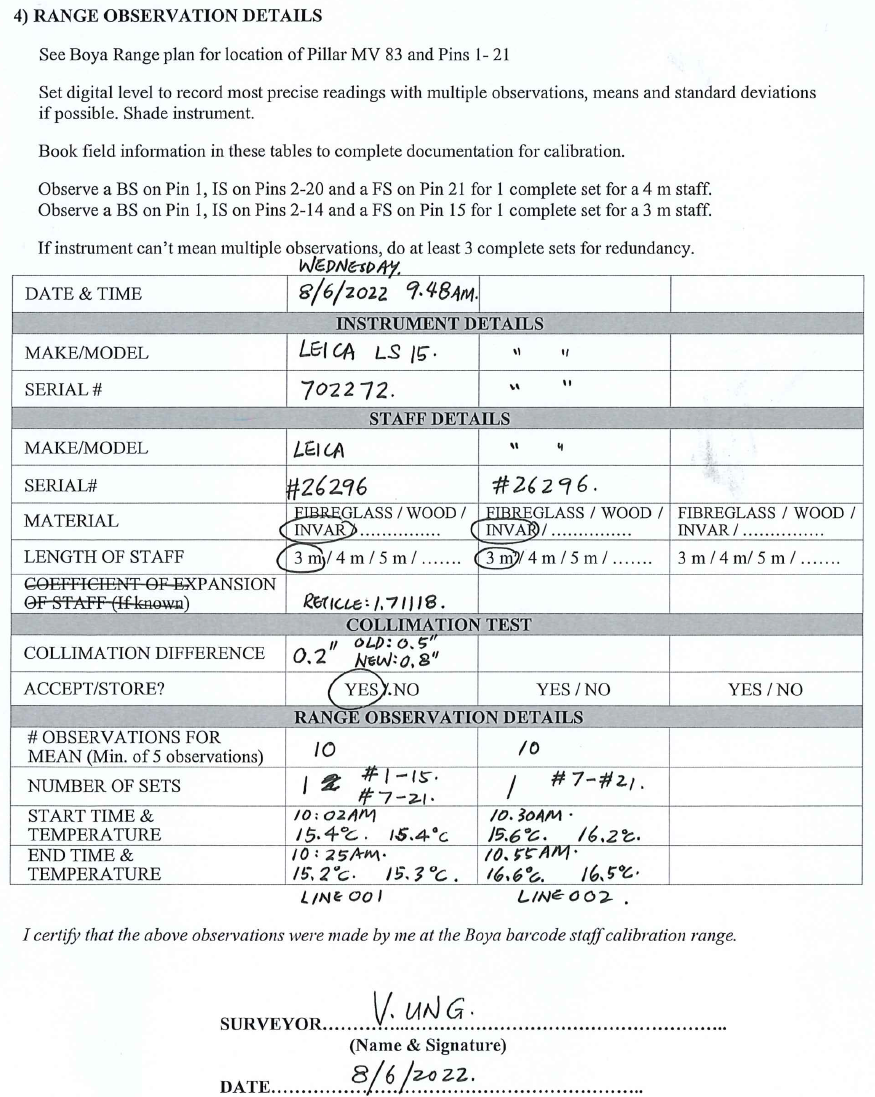 4) RANGE OBSERVATION DETAILS
See Boya Range plan for location of Pillar MV 83 and Pins 1- 21
Set digital level to record most precise readings with multiple observations, means and standard deviations
if possible. Shade instrument.
Book field information in these tables to complete documentation for calibration.
Observe a BS on Pin 1, IS on Pins 2-20 and a FS on Pin 21 for 1 complete set for a 4 m staff.
Observe a BS on Pin 1, IS on Pins 2-14 and a FS on Pin 15 for 1 complete set for a 3 m staff.
If instrument can't mean multiple observations, do at least 3 complete sets for redundancy.
WEDNESDAY.
DATE & TIME 8/6/2022 9.48AM.
INSTRUMENT DETAILS
MAKE/MODEL LEICA LS 15. " "
SERIAL # 702272. " "
STAFF DETAILS
MAKE/MODEL LEICA " "
SERIAL# #26296 #26296.
MATERIAL FIBREGLASS / WOOD / FIBREGLASS / WOOD / FIBREGLASS / WOOD /
INVAR / ............... INVAR / ............... INVAR / ...............
LENGTH OF STAFF 3 m / 4 m / 5 m / ....... 3 m / 4 m / 5 m / ....... 3 m / 4 m/ 5 m / .......
COEFFICIENT OF EXPANSION
OF STAFF (If known) RETICLE: 1.71118.
COLLIMATION TEST
COLLIMATION DIFFERENCE 0.2" OLD: 0.5"
NEW: 0.8"
ACCEPT/STORE? YES / NO YES / NO YES / NO
RANGE OBSERVATION DETAILS
# OBSERVATIONS FOR
MEAN (Min. of 5 observations) 10 10
NUMBER OF SETS 1 #1-15. 1 #7-#21.
#7-21.
START TIME & 10:02AM 10.30AM.
TEMPERATURE 15.4°C. 15.4°C 15.6°C. 16.2°C.
END TIME & 10:25AM. 10.55AM.
TEMPERATURE 15.2°C. 15.3°C. 16.6°C. 16.5°C.
LINE 001 LINE 002.
I certify that the above observations were made by me at the Boya barcode staff calibration range.
SURVEYOR V. UNG.
(Name & Signature)
DATE 8/6/2022.